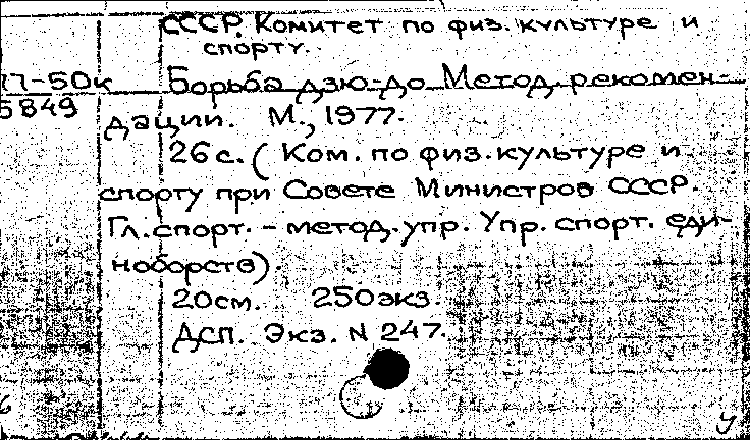 СССР. Комитет по физ. культуре и
спорту.
Борьба дзю-до. Метод. рекомен-
5849
дации. М., 1977.
26 с. ( Ком. по физ. культуре и
спорту при Совете Министров СССР.
Гл. спорт. - метод. упр. Упр. спорт. еди-
ноборств).
20см. 250экз.
ДСП. Экз. N 247.